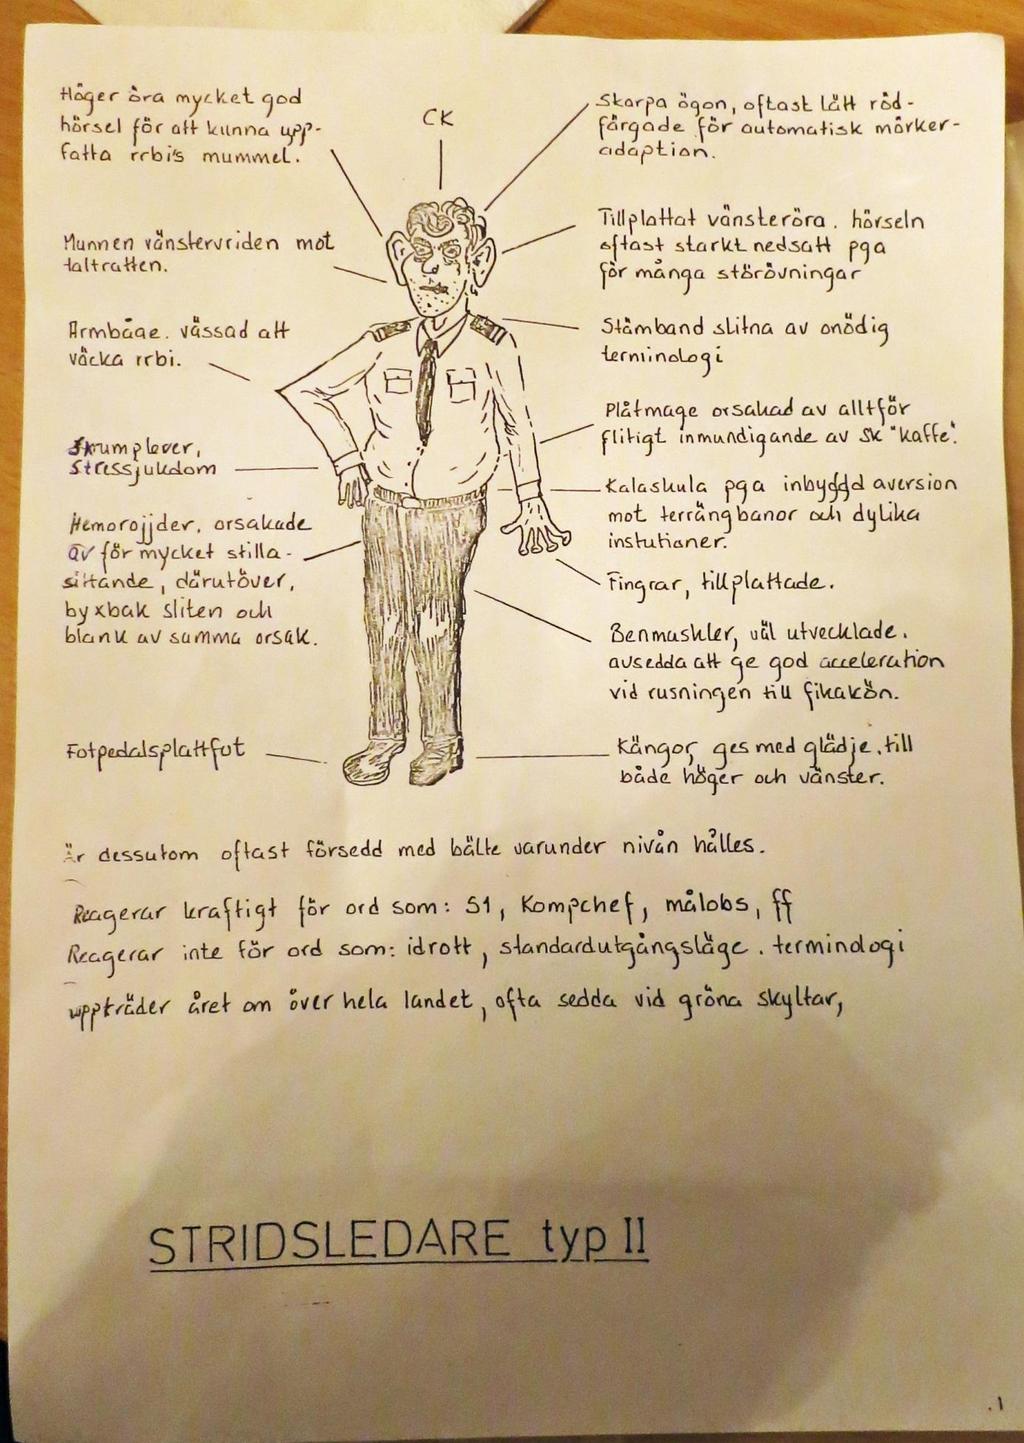 Höger öra mycket god
hörsel för att kunna upp-
fatta rrbi's mummel.
Munnen vänstervriden mot
taltratten.
Armbåge. vässad att
väcka rrbi.
Skrumplever,
stressjukdom
Hemorojjder. orsakade
av för mycket stilla-
sittande, därutöver,
byxbak sliten och
blank av samma orsak.
Fotpedalsplattfot
CK
Skarpa ögon, oftast lätt röd-
färgade för automatisk mörker-
adaption.
Tillplattat vänsteröra. hörseln
oftast starkt nedsatt pga
för många störövningar
Stämband slitna av onödig
terminologi
Plåtmage orsakad av alltför
flitigt inmundigande av sk "kaffe".
Kalaskula pga inbyggd aversion
mot terrängbanor och dylika
instutioner.
Fingrar, tillplattade.
Benmuskler, väl utvecklade.
avsedda att ge god acceleration
vid rusningen till fikakön.
Kängor, ges med glädje. till
både höger och vänster.
Är dessutom oftast försedd med bälte varunder nivån hålles.
Reagerar kraftigt för ord som: S1, Kompchef, målobs, ff
Reagerar inte för ord som: idrott, standardutgångsläge. terminologi
uppträder året om över hela landet, ofta sedda vid gröna skyltar,
STRIDSLEDARE typ II
.1